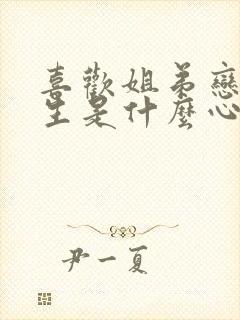 喜歡姐弟戀
生是什麼心
尹一夏